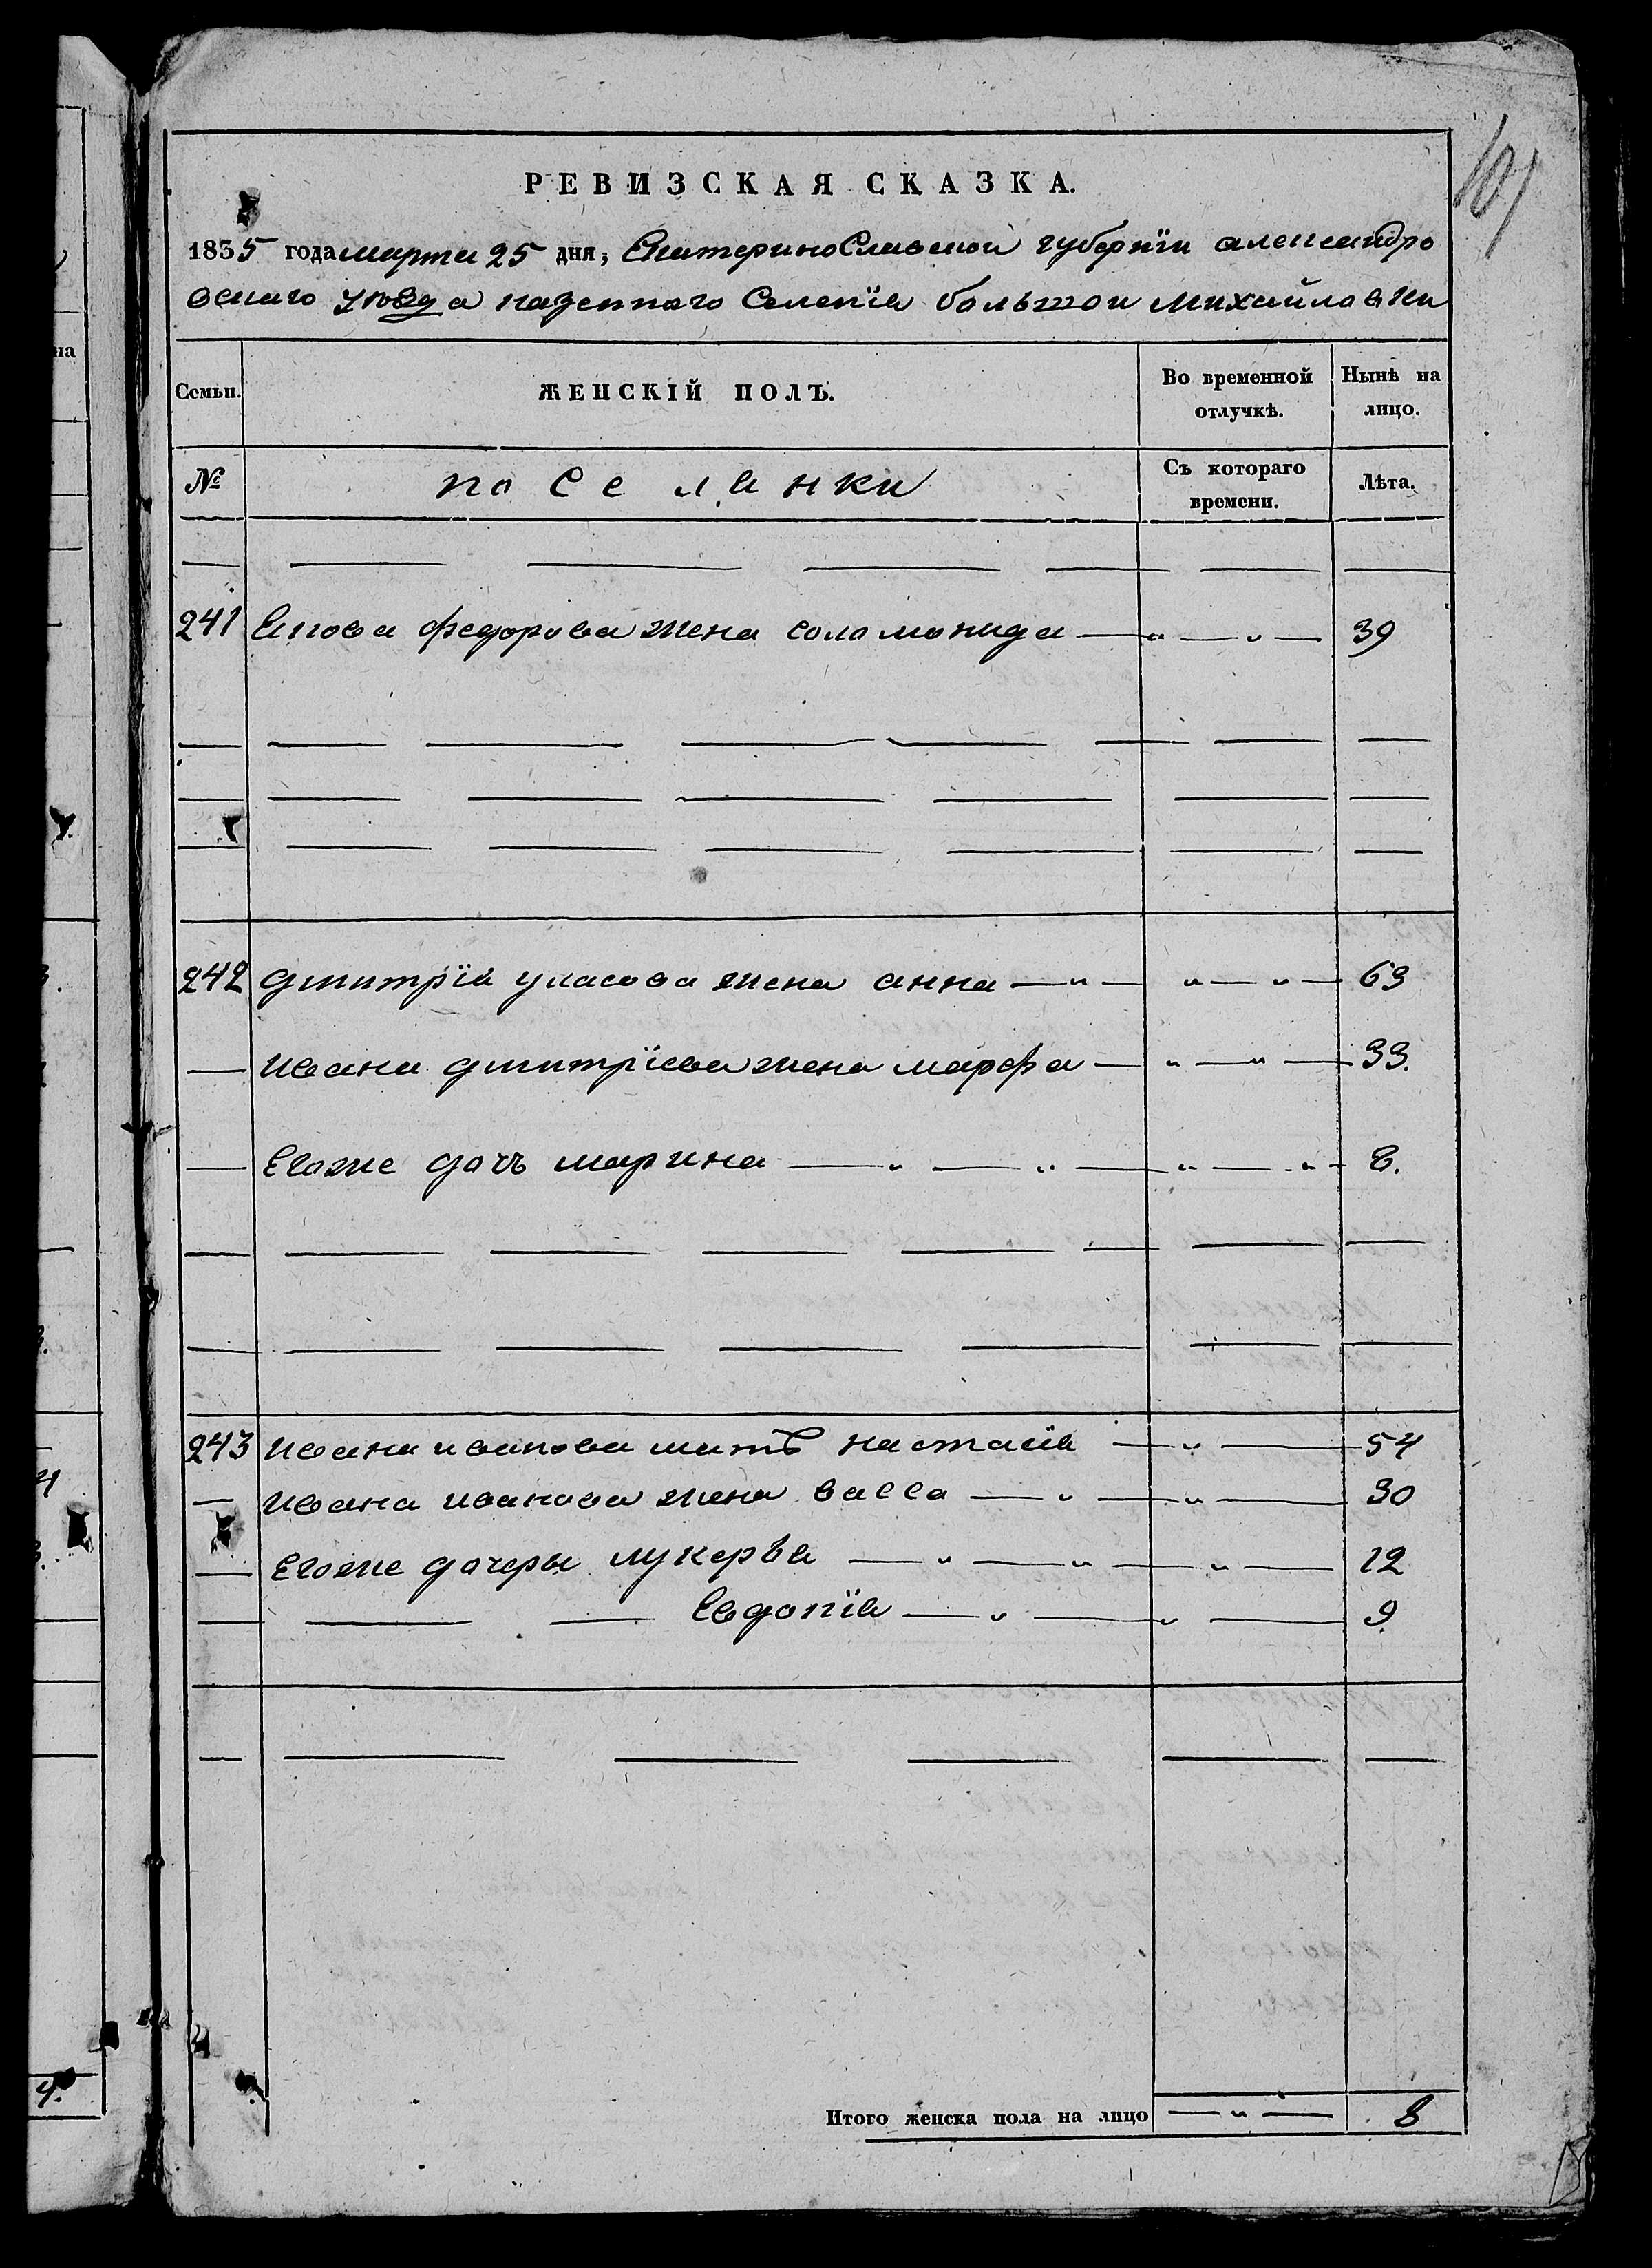 101
РЕВИЗСКАЯ СКАЗКА.
1835 года марта 25 дня, Екатеринославской губернїи александро
вскаго уѣзда казеннаго Селенїя большой михайловки
Семьи.
ЖЕНСКІЙ ПОЛЪ.
Во временной отлучкѣ.
Нынѣ на лицо.
№
поселянки
Съ котораго времени.
Лѣта.
241 Якова федорова жена соломонида — „ — „ — 39
242 дмитрїя уласова жена анна — „ — „ — „ — 63
— ивана дмитрїева жена марфа — „ — „ — 33.
— Егоже дочъ марина — „ — „ — „ — „ — 8.
243 ивана иванова матъ настасїя — „ — 54
— ивана иванова жена васса — „ — „ — 30
— Егоже дочеры лукеръя — „ — „ — „ — 12
— — — Евдокїя — „ — „ — 9
Итого женска пола на лицо — „ — 8
на
4.